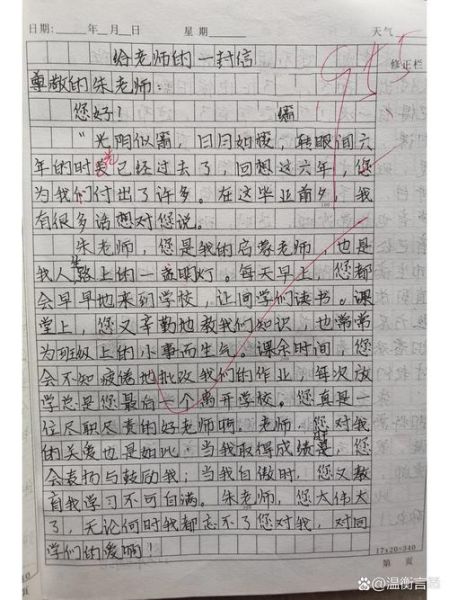 日期：____年__月__日 星期____ 天气____
修正栏
给老师的一封信 95
尊敬的朱老师：
您好！ 箭
“光阴似箭，日月如梭，转眼间六
年的时光已经过去了，回想这六年，您
为我们付出了许多。在这毕业前夕，我
有很多话想对您说。
朱老师，您是我的启蒙老师，也是
我人生路上的一盏明灯。每天早上，您都
会早早地来到学校，让同学们读书。课
堂上，您又辛勤地教我们知识，也常常
为班级上的小事而生气。课余时间，您
会不知疲倦地批改我们的作业，每次放
学总是您最后一个离开学校。您真是一
位尽职尽责的好老师啊，老师，您对我
的关爱也是如此，当我取得成绩时，您
会表扬与鼓励我；当我自傲时，您又教
育我学习不可自满。朱老师，您太伟大
了，无论何时我都忘不了您对我，对同
学们的爱啊！
17×20=340
第 页
头条 @温衡言语